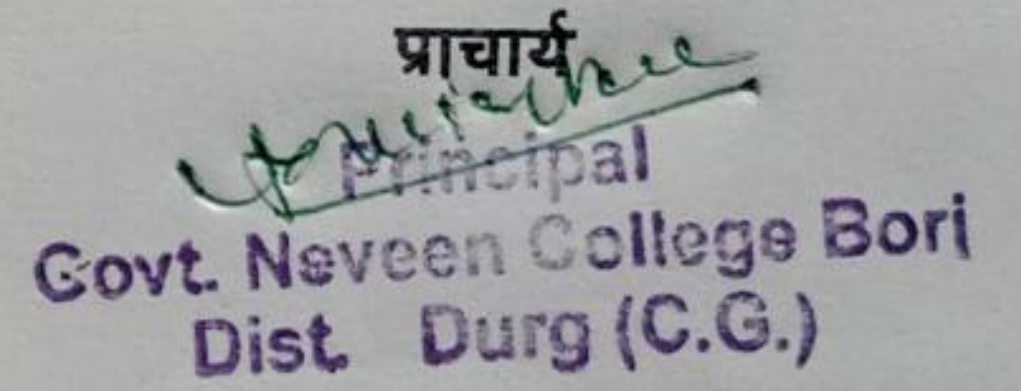 प्राचार्य
Principal
Govt. Neveen College Bori
Dist. Durg (C.G.)